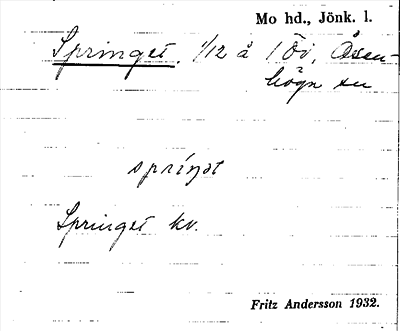 Mo hd., Jönk. l.
Springet. 1/12 å 1 Öv, Åsen-
högn su
spríŋət
Springet kv.
Fritz Andersson 1932.